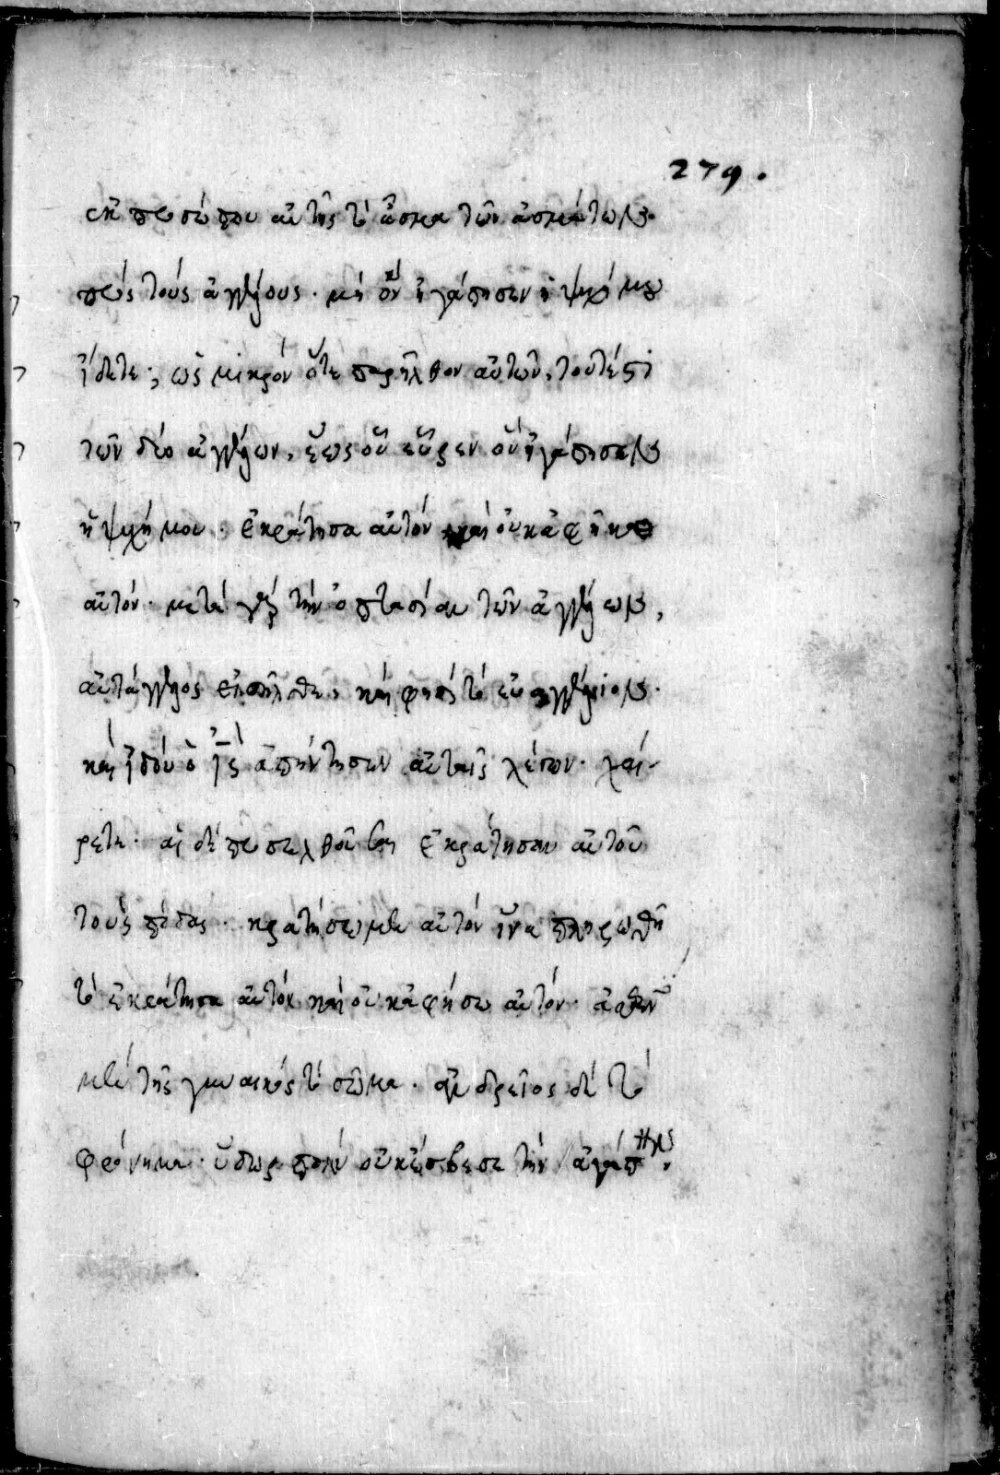 279.
ἐκ προσώπου αὐτῆς τὸ ἆσμα τῶν ἀσμάτων·
πρὸς τοὺς ἀγγέλους· μὴ ὃν ἠγάπησεν ἡ ψυχή μου
ἴδετε; ὡς μικρὸν ὅτε παρῆλθον αὐτῶν, τουτέστι
τῶν δύο ἀγγέλων, ἕως οὗ εὗρεν ὃν ἠγάπησεν
ἡ ψυχή μου· ἐκράτησα αὐτόν καὶ οὐκ ἀφῆκα
αὐτόν· μετὰ γὰρ τὴν ὀπτασίαν τῶν ἀγγέλων,
αὐτάγγελος ἐπῆλθε, καὶ φησὶ τὸ εὐαγγέλιον·
καὶ ἰδοὺ ὁ ἰς ἀπήντησεν αὐταῖς λέγων· χαί-
ρετε· αἱ δὲ προσελθοῦσαι ἐκράτησαν αὐτοῦ
τοὺς πόδας· κρατήσωμεν αὐτόν ἵνα πληρωθῇ
τὸ ἐκράτησα αὐτόν καὶ οὐκ ἀφήσω αὐτόν·
μὲν τῆς γυναικὸς τὸ σῶμα· ἀνδρεῖος δὲ τὸ
φρόνημα· ὕδωρ πολὺ οὐκ ἔσβεσε τὴν ἀγάπην·